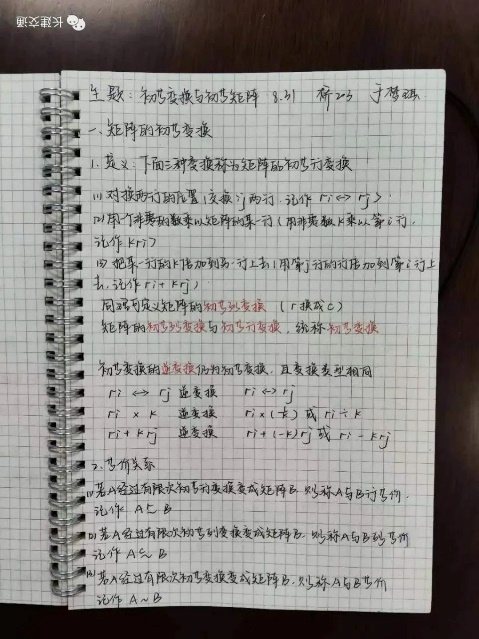 长建交通
主题: 初等变换与初等矩阵 8.31 桥203 于梦琪
一、矩阵的初等变换
1.定义:下面三种变换称为矩阵的初等行变换
(1)对换两行的位置(交换i,j两行,记作 ri↔rj)
(2)用一个非零的数乘以矩阵的某一行(用非零数K乘以第i行,
记作 Kri)
(3)把某一行的K倍加到另一行上去(用第j行的行倍加到第i行上
去,记作 ri+krj)
同理可定义矩阵的初等列变换 (r换成c)
矩阵的初等列变换与初等行变换,统称初等变换
初等变换的逆变换仍为初等变换,且变换类型相同
ri ↔ rj 逆变换 ri ↔ rj
ri × k 逆变换 ri×(1/k) 或 ri÷k
ri+krj 逆变换 ri+(-k)rj 或 ri-krj
2.等价关系
(1)若A经过有限次初等行变换变成矩阵B,则称A与B行等价,
记作 A ~ B
(2)若A经过有限次初等列变换变成矩阵B,则称A与B列等价
记作 A ~ B
(3)若A经过有限次初等变换变成矩阵B,则称A与B等价
记作 A~B